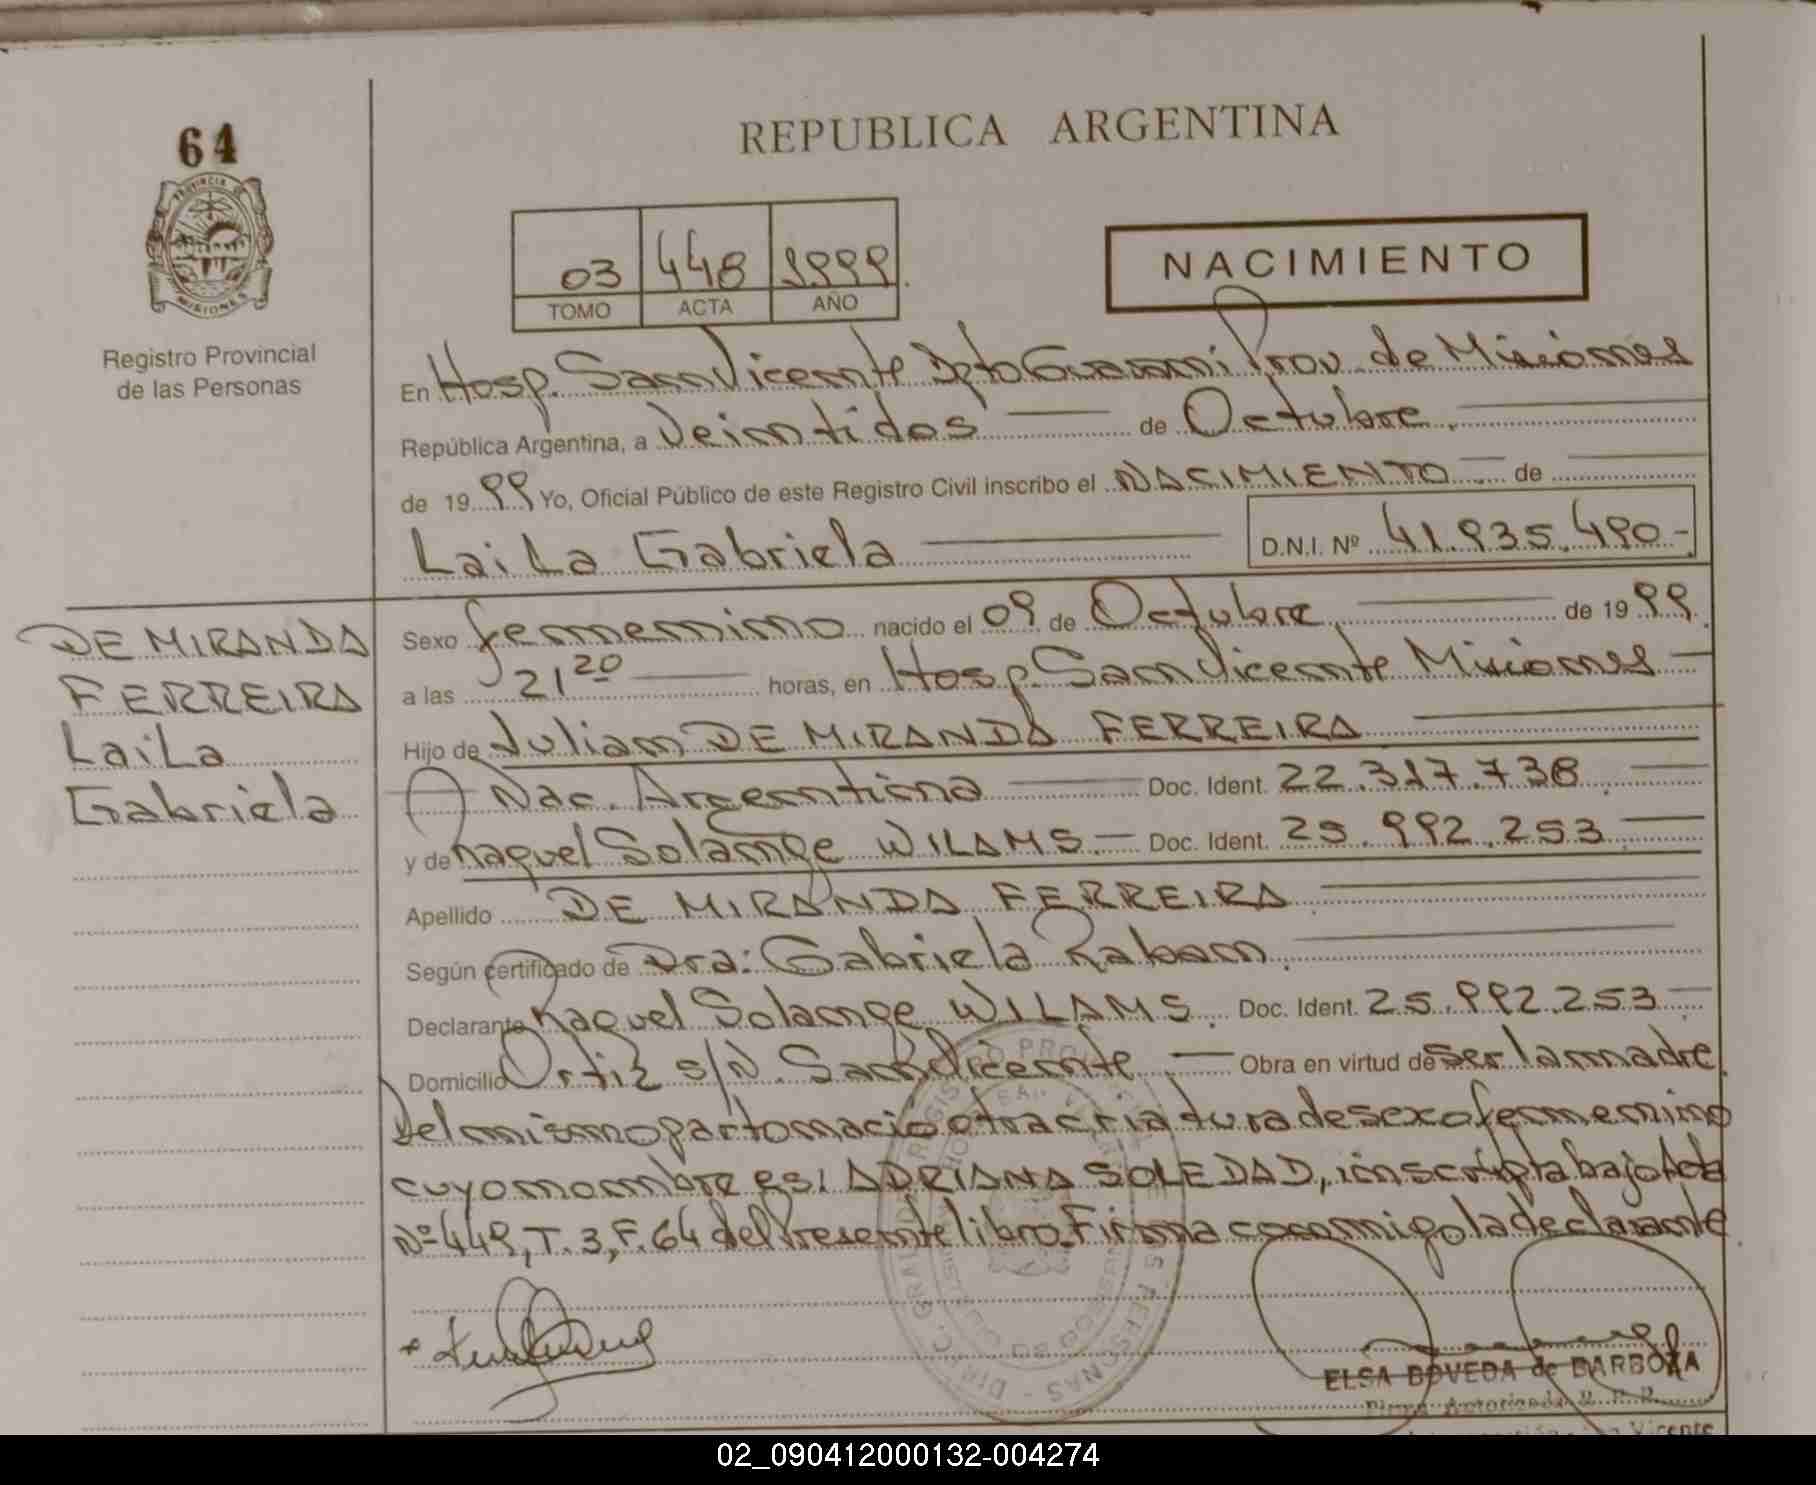 64
PROVINCIA DE
MISIONES
Registro Provincial
de las Personas
REPUBLICA ARGENTINA
03 448 1999
TOMO ACTA AÑO
NACIMIENTO
En Hosp. San Vicente Dpto Guarani Prov. de Misiones
República Argentina, a Veintidos de Octubre.
de 1999 Yo, Oficial Público de este Registro Civil inscribo el NACIMIENTO de
LaiLa Gabriela D.N.I. Nº 41.935.490-
DE MIRANDA
FERREIRA
LaiLa
Gabriela
Sexo femenino nacido el 09 de Octubre. de 1999.
a las 21 20 horas, en Hosp. San Vicente Misiones
Hijo de Julian DE MIRANDA FERREIRA
Nac. Argentina Doc. Ident. 22.317.738
y de Raquel Solange WILAMS. Doc. Ident. 25.992.253
Apellido DE MIRANDA FERREIRA
Según certificado de Dra: Gabriela Raban.
Declarante Raquel Solange WILAMS. Doc. Ident. 25.992.253
Domicilio Ortiz s/N. San Vicente. Obra en virtud de ser la madre.
Del mismo parto nacio otra criatura de sexo femenino
cuyo nombre es: ADRIANA SOLEDAD, inscripta bajo Acta
Nº 449, T. 3, F. 64 del Presente libro. Firma conmigo la declarante.
ELSA BOVEDA de BARBOZA
Firma Autorizada
Vicente
02_090412000132-004274